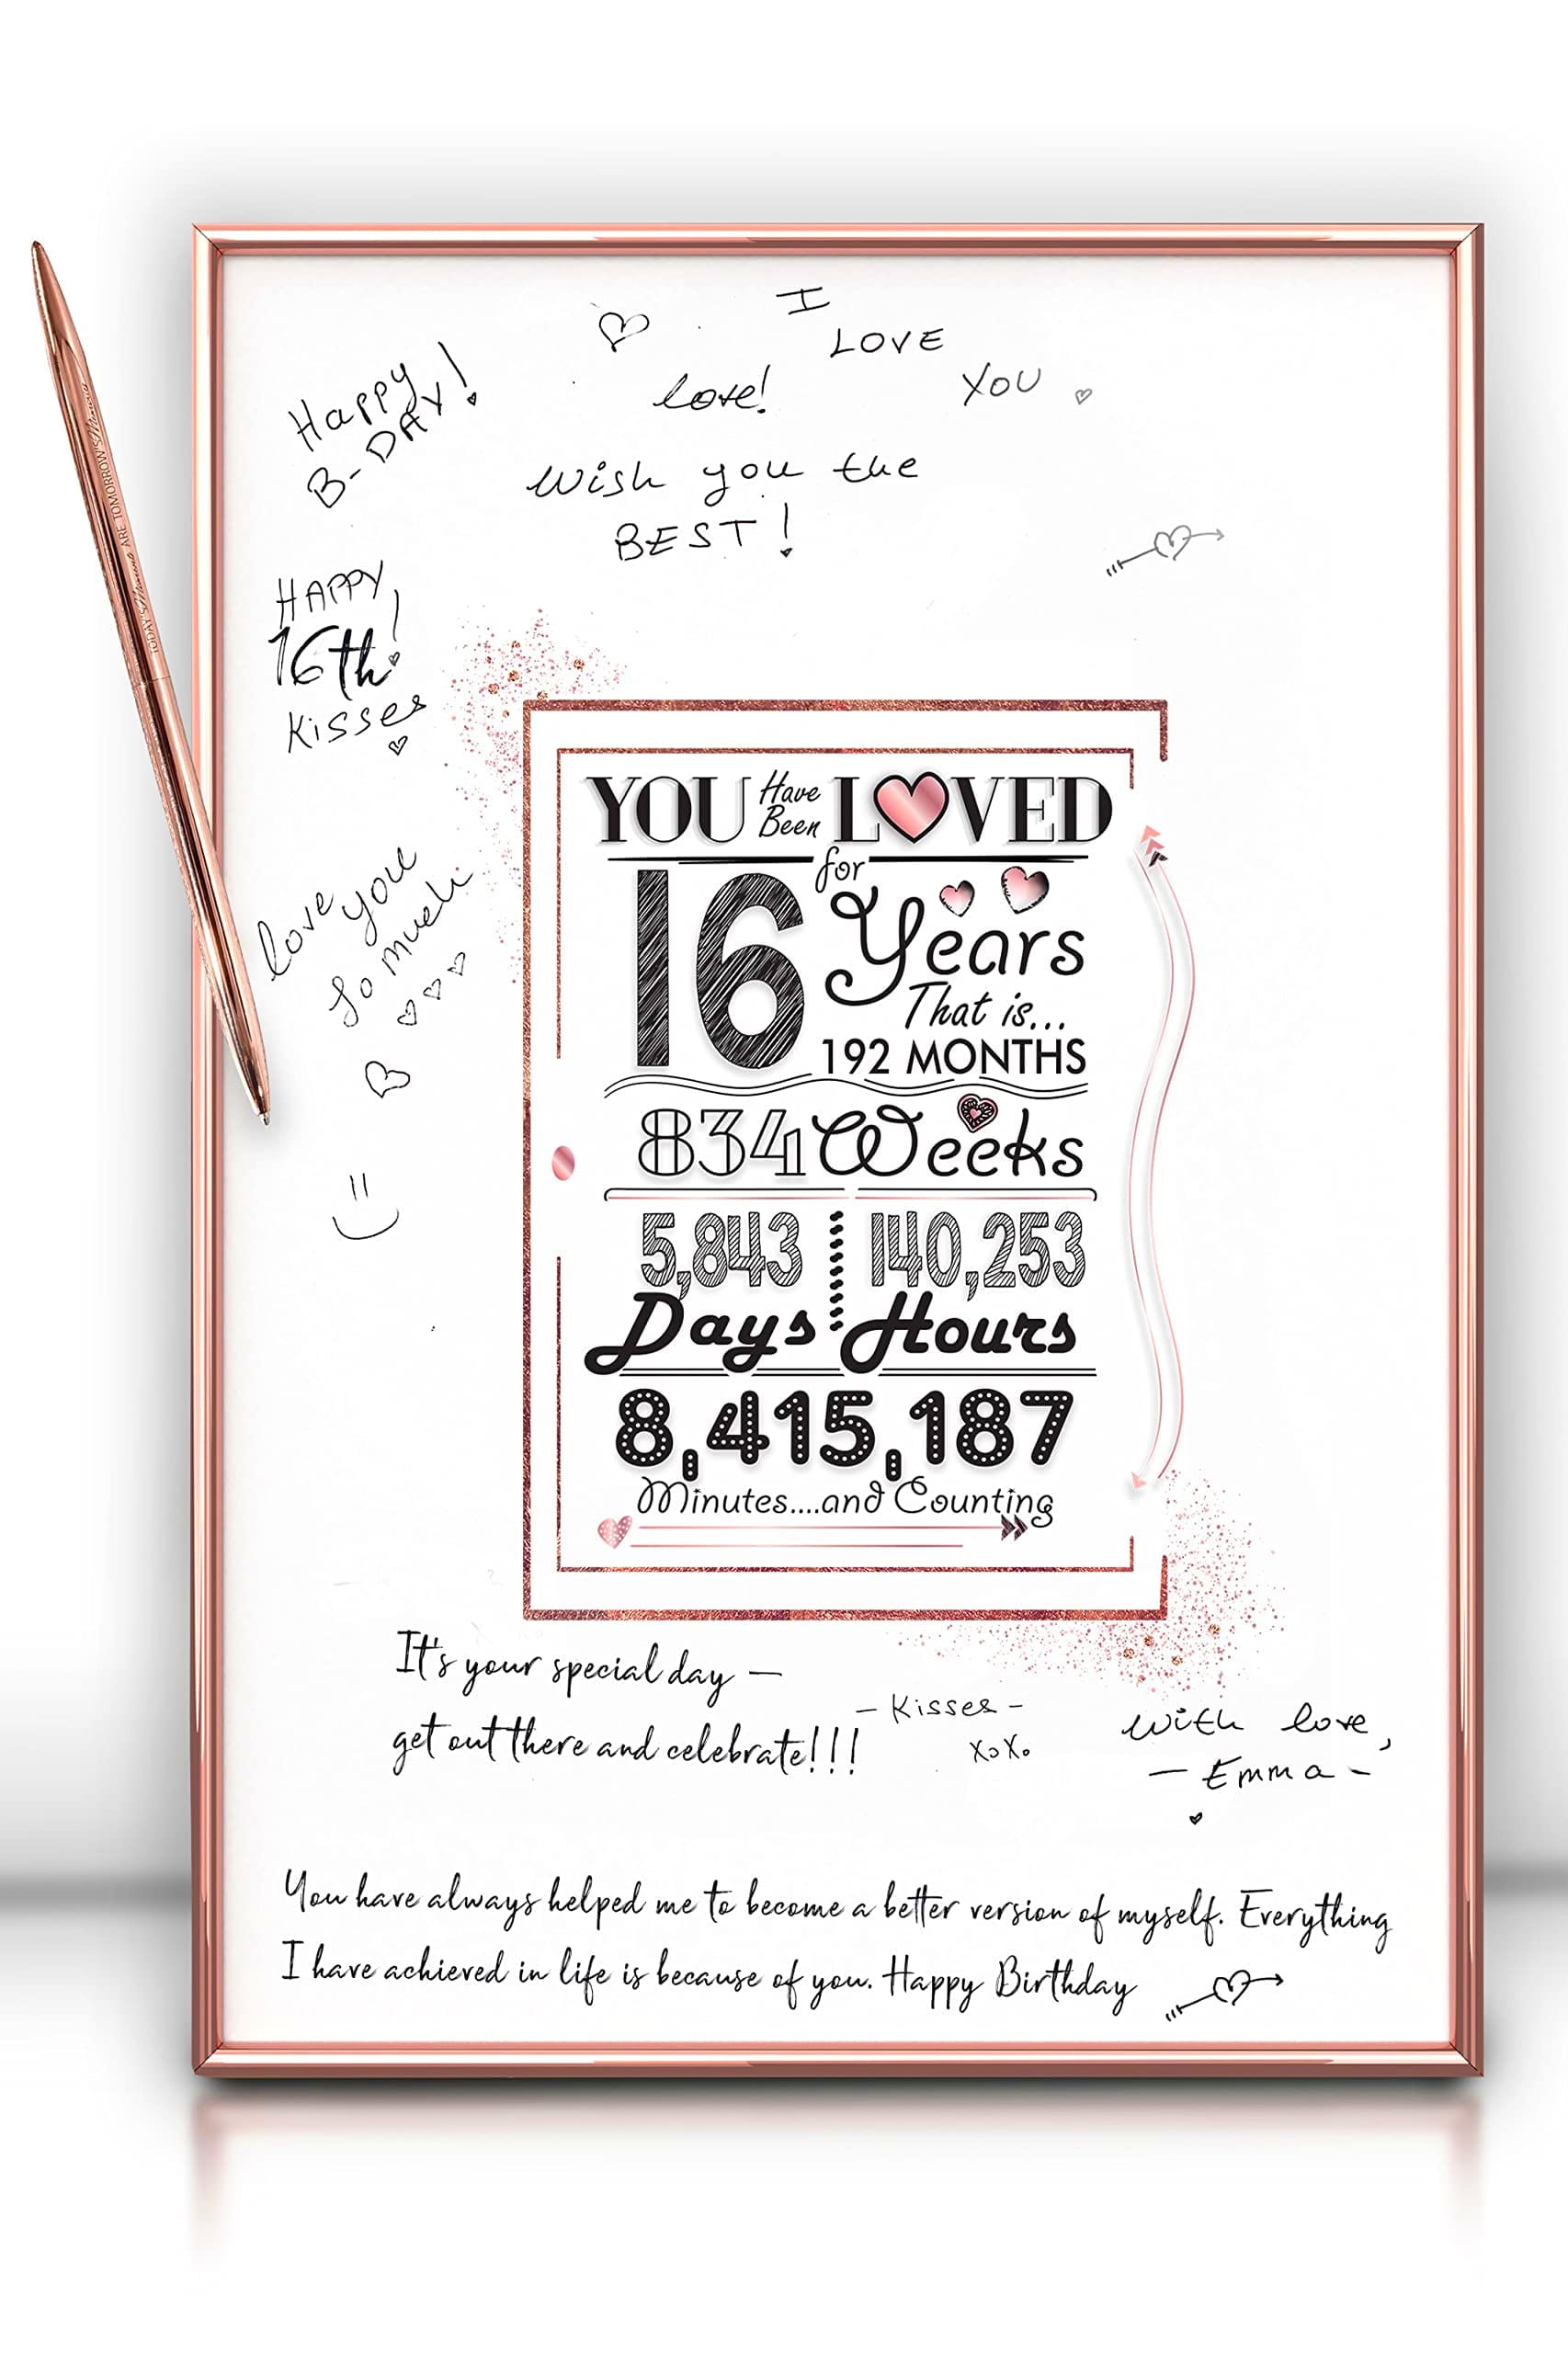 I
LOVE
YOU
love!
Happy
B-DAY!
Wish you the
BEST!
HAPPY
16th!
Kisses
love you
so much
YOU Have Been LOVED
for
16 Years
That is...
192 MONTHS
834 Weeks
5,843 Days
140,253 Hours
8,415,187
Minutes....and Counting
It's your special day –
get out there and celebrate!!!
- Kisses -
XoXo
With love,
- Emma -
You have always helped me to become a better version of myself. Everything
I have achieved in life is because of you. Happy Birthday